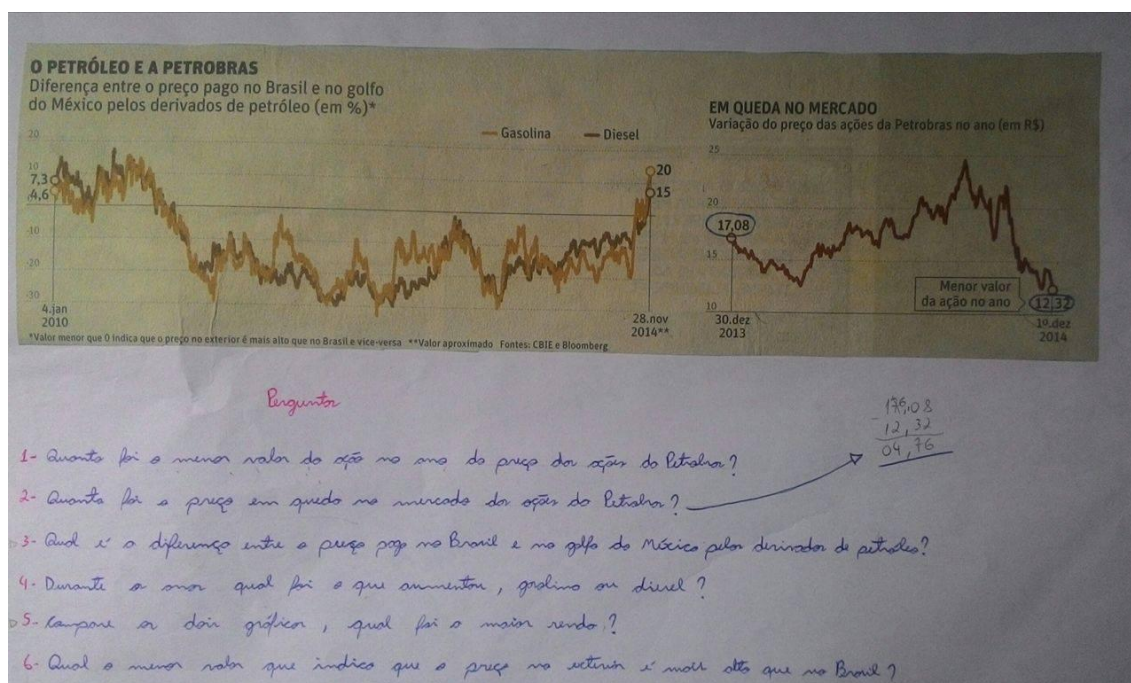 O PETRÓLEO E A PETROBRAS
Diferença entre o preço pago no Brasil e no golfo
do México pelos derivados de petróleo (em %)*
Gasolina
Diesel
20
10
7,3
4,6
-10
-20
-30
20
15
4.jan
2010
28.nov
2014**
*Valor menor que 0 indica que o preço no exterior é mais alto que no Brasil e vice-versa **Valor aproximado Fontes: CBIE e Bloomberg
EM QUEDA NO MERCADO
Variação do preço das ações da Petrobras no ano (em R$)
25
20
17,08
15
10
Menor valor
da ação no ano
12,32
30.dez
2013
1º.dez
2014
Perguntas
17,08
12,32
04,76
1- Quanto foi o menor valor da ação no ano do preço das ações da Petrobras?
2- Quanto foi o preço em queda no mercado das ações da Petrobras?
3- Qual é a diferença entre o preço pago no Brasil e no golfo do México pelos derivados de petróleo?
4- Durante os anos qual foi o que aumentou, gasolina ou diesel?
5- Compare os dois gráficos, qual foi a maior renda?
6- Qual o menor valor que indica que o preço no exterior é mais alto que no Brasil?